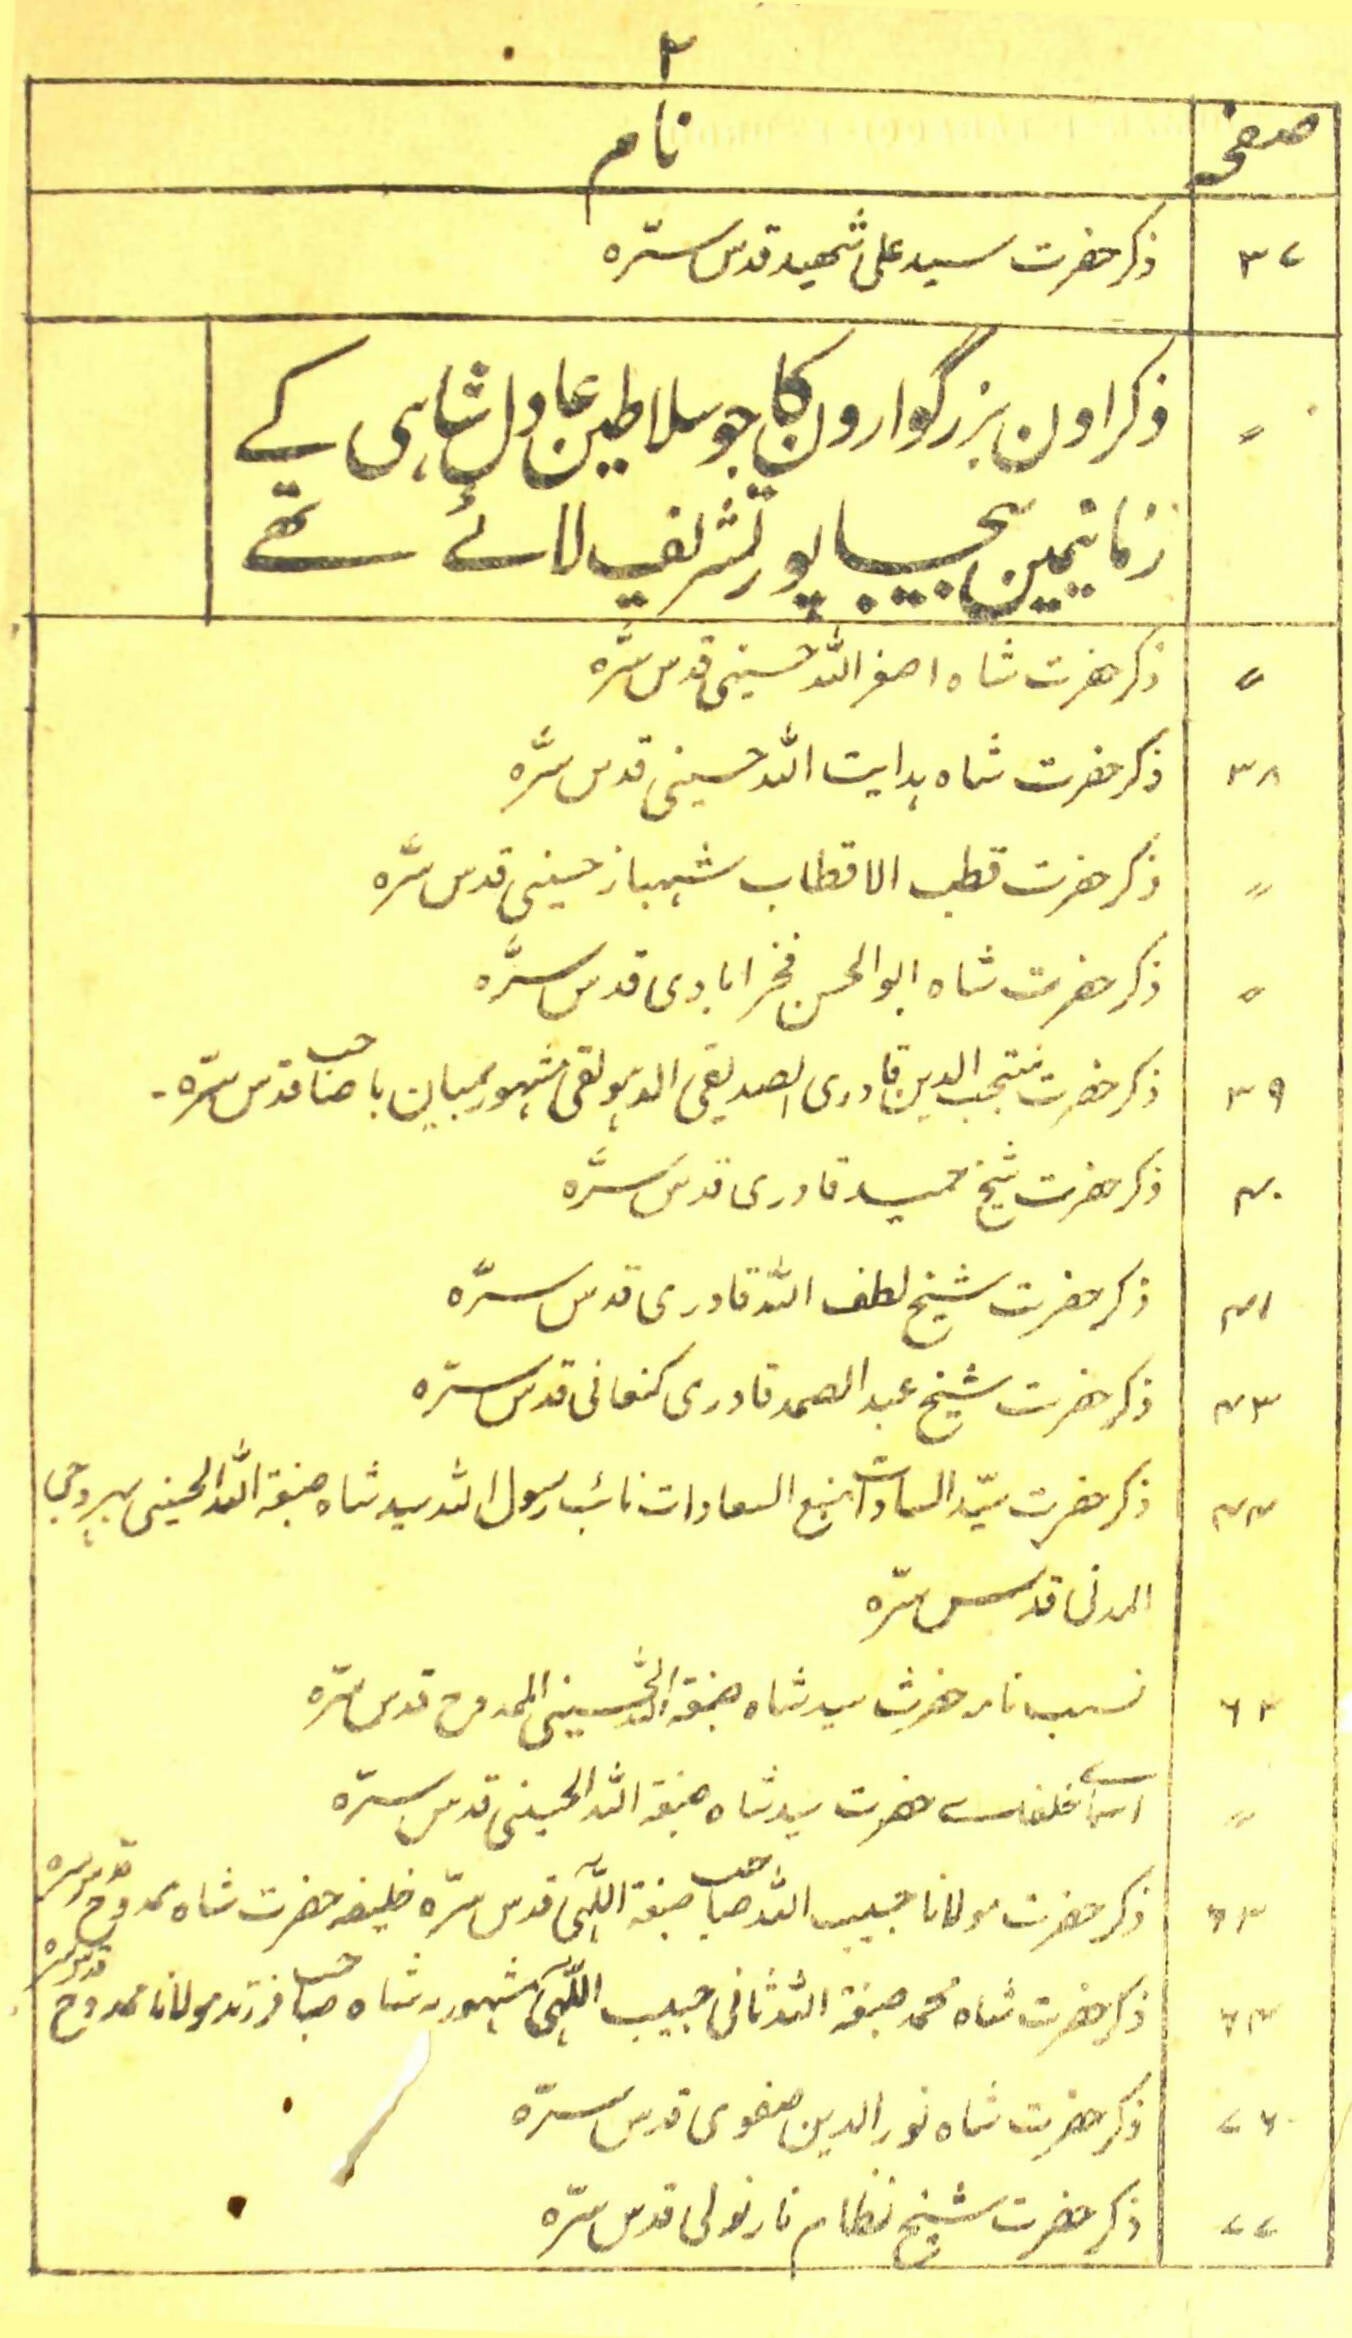 ۲
صفحہ نام
۳۷ ذکر حضرت سید علی شہید قدس سرّہ
〃 ذکر اون بزرگوارون کا جو سلاطین عادل شاہی کے
زمانیمین بیجاپور تشریف لائے تھے
〃 ذکر حضرت شاہ اصغر اللہ حسینی قدس سرّہ
۳۸ ذکر حضرت شاہ ہدایت اللہ حسینی قدس سرّہ
〃 ذکر حضرت قطب الاقطاب شہباز حسینی قدس سرّہ
〃 ذکر حضرت شاہ ابو الحسن فخرابادی قدس سرّہ
۳۹ ذکر حضرت منتجب الدین قادری الصدیقی مشہور بمیان با صاحب قدس سرّہ۔
۴۰ ذکر حضرت شیخ حمید قادری قدس سرّہ
۴۱ ذکر حضرت شیخ لطف اللہ قادری قدس سرّہ
۴۳ ذکر حضرت شیخ عبد الصمد قادری کنعانی قدس سرّہ
۴۴ ذکر حضرت سیّد السادات منبع السعادات نائب رسول اللہ سید شاہ صبغۃ اللہ الحسینی بہروجی
المدنی قدس سرّہ
۶۲ نسب نامہ حضرت سید شاہ صبغۃ اللہ الحسینی الممدوح قدس سرّہ
〃 اسمائے خلفائے حضرت سید شاہ صبغۃ اللہ الحسینی قدس سرّہ
۶۳ ذکر حضرت مولانا حبیب اللہ صاحب صبغۃ اللّٰہی قدس سرّہ خلیفہ حضرت شاہ ممدوح قدس سرہ
۶۴ ذکر حضرت شاہ محمد صبغۃ اللہ ثانی حبیب اللّٰہی مشہور بہ شاہ صاحب فرزند مولانا ممدوح قدس سرہ
۷۶ ذکر حضرت شاہ نور الدین صفوی قدس سرّہ
۷۷ ذکر حضرت شیخ نظام نارنولی قدس سرّہ